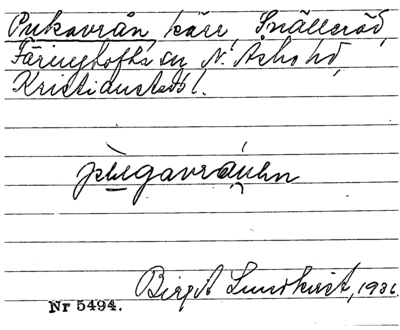 Pukavrån, kärr, Snällsröd,
Färinghofta sn N. Asbo hd,
Kristianstads l.
Birgit Lundkvist, 1936.
Nr 5494.